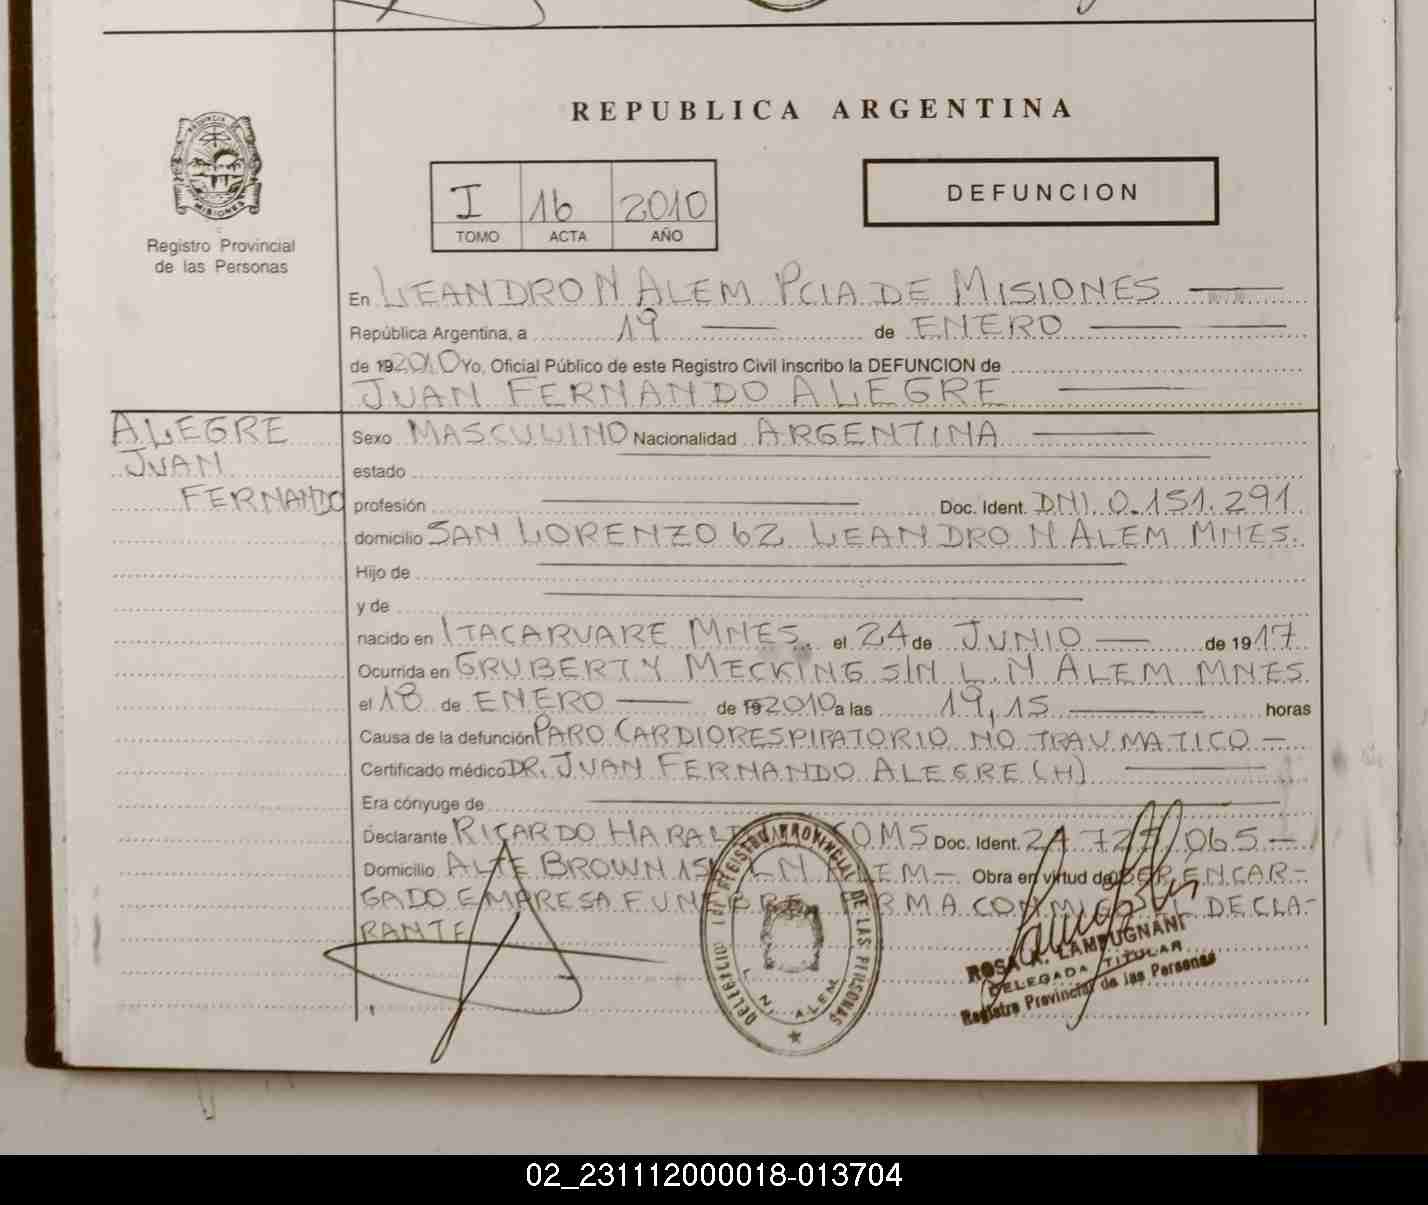 REPUBLICA ARGENTINA
PROVINCIA DE MISIONES
Registro Provincial
de las Personas
I 16 2010
TOMO ACTA AÑO
DEFUNCION
En LEANDRO N ALEM PCIA DE MISIONES
República Argentina, a 19 de ENERO
de 192010 Yo, Oficial Público de este Registro Civil inscribo la DEFUNCION de
JUAN FERNANDO ALEGRE
ALEGRE
JUAN
FERNANDO
Sexo MASCULINO Nacionalidad ARGENTINA
estado
profesión Doc. Ident. DNI. 0.151.291
domicilio SAN LORENZO 62 LEANDRO N ALEM MNES.
Hijo de
y de
nacido en ITACARUARE MNES. el 24 de JUNIO de 1917
Ocurrida en GRUBERT Y MECKING S/N L.N ALEM MNES
el 18 de ENERO de 192010 a las 19,15 horas
Causa de la defunción PARO CARDIORESPIRATORIO NO TRAUMATICO
Certificado médico DR. JUAN FERNANDO ALEGRE (H)
Era cónyuge de
Declarante RICARDO Doc. Ident.
Domicilio ALTE BROWN L N ALEM Obra en virtud de SER ENCAR-
GADO EMPRESA FUNEBRE FIRMA CONMIGO EL DECLA-
RANTE
DELEGACION REGISTRO PROVINCIAL DE LAS PERSONAS
L. N. ALEM
ROSA A. LAMPUGNANI
DELEGADA TITULAR
Registro Provincial de las Personas
02_231112000018-013704